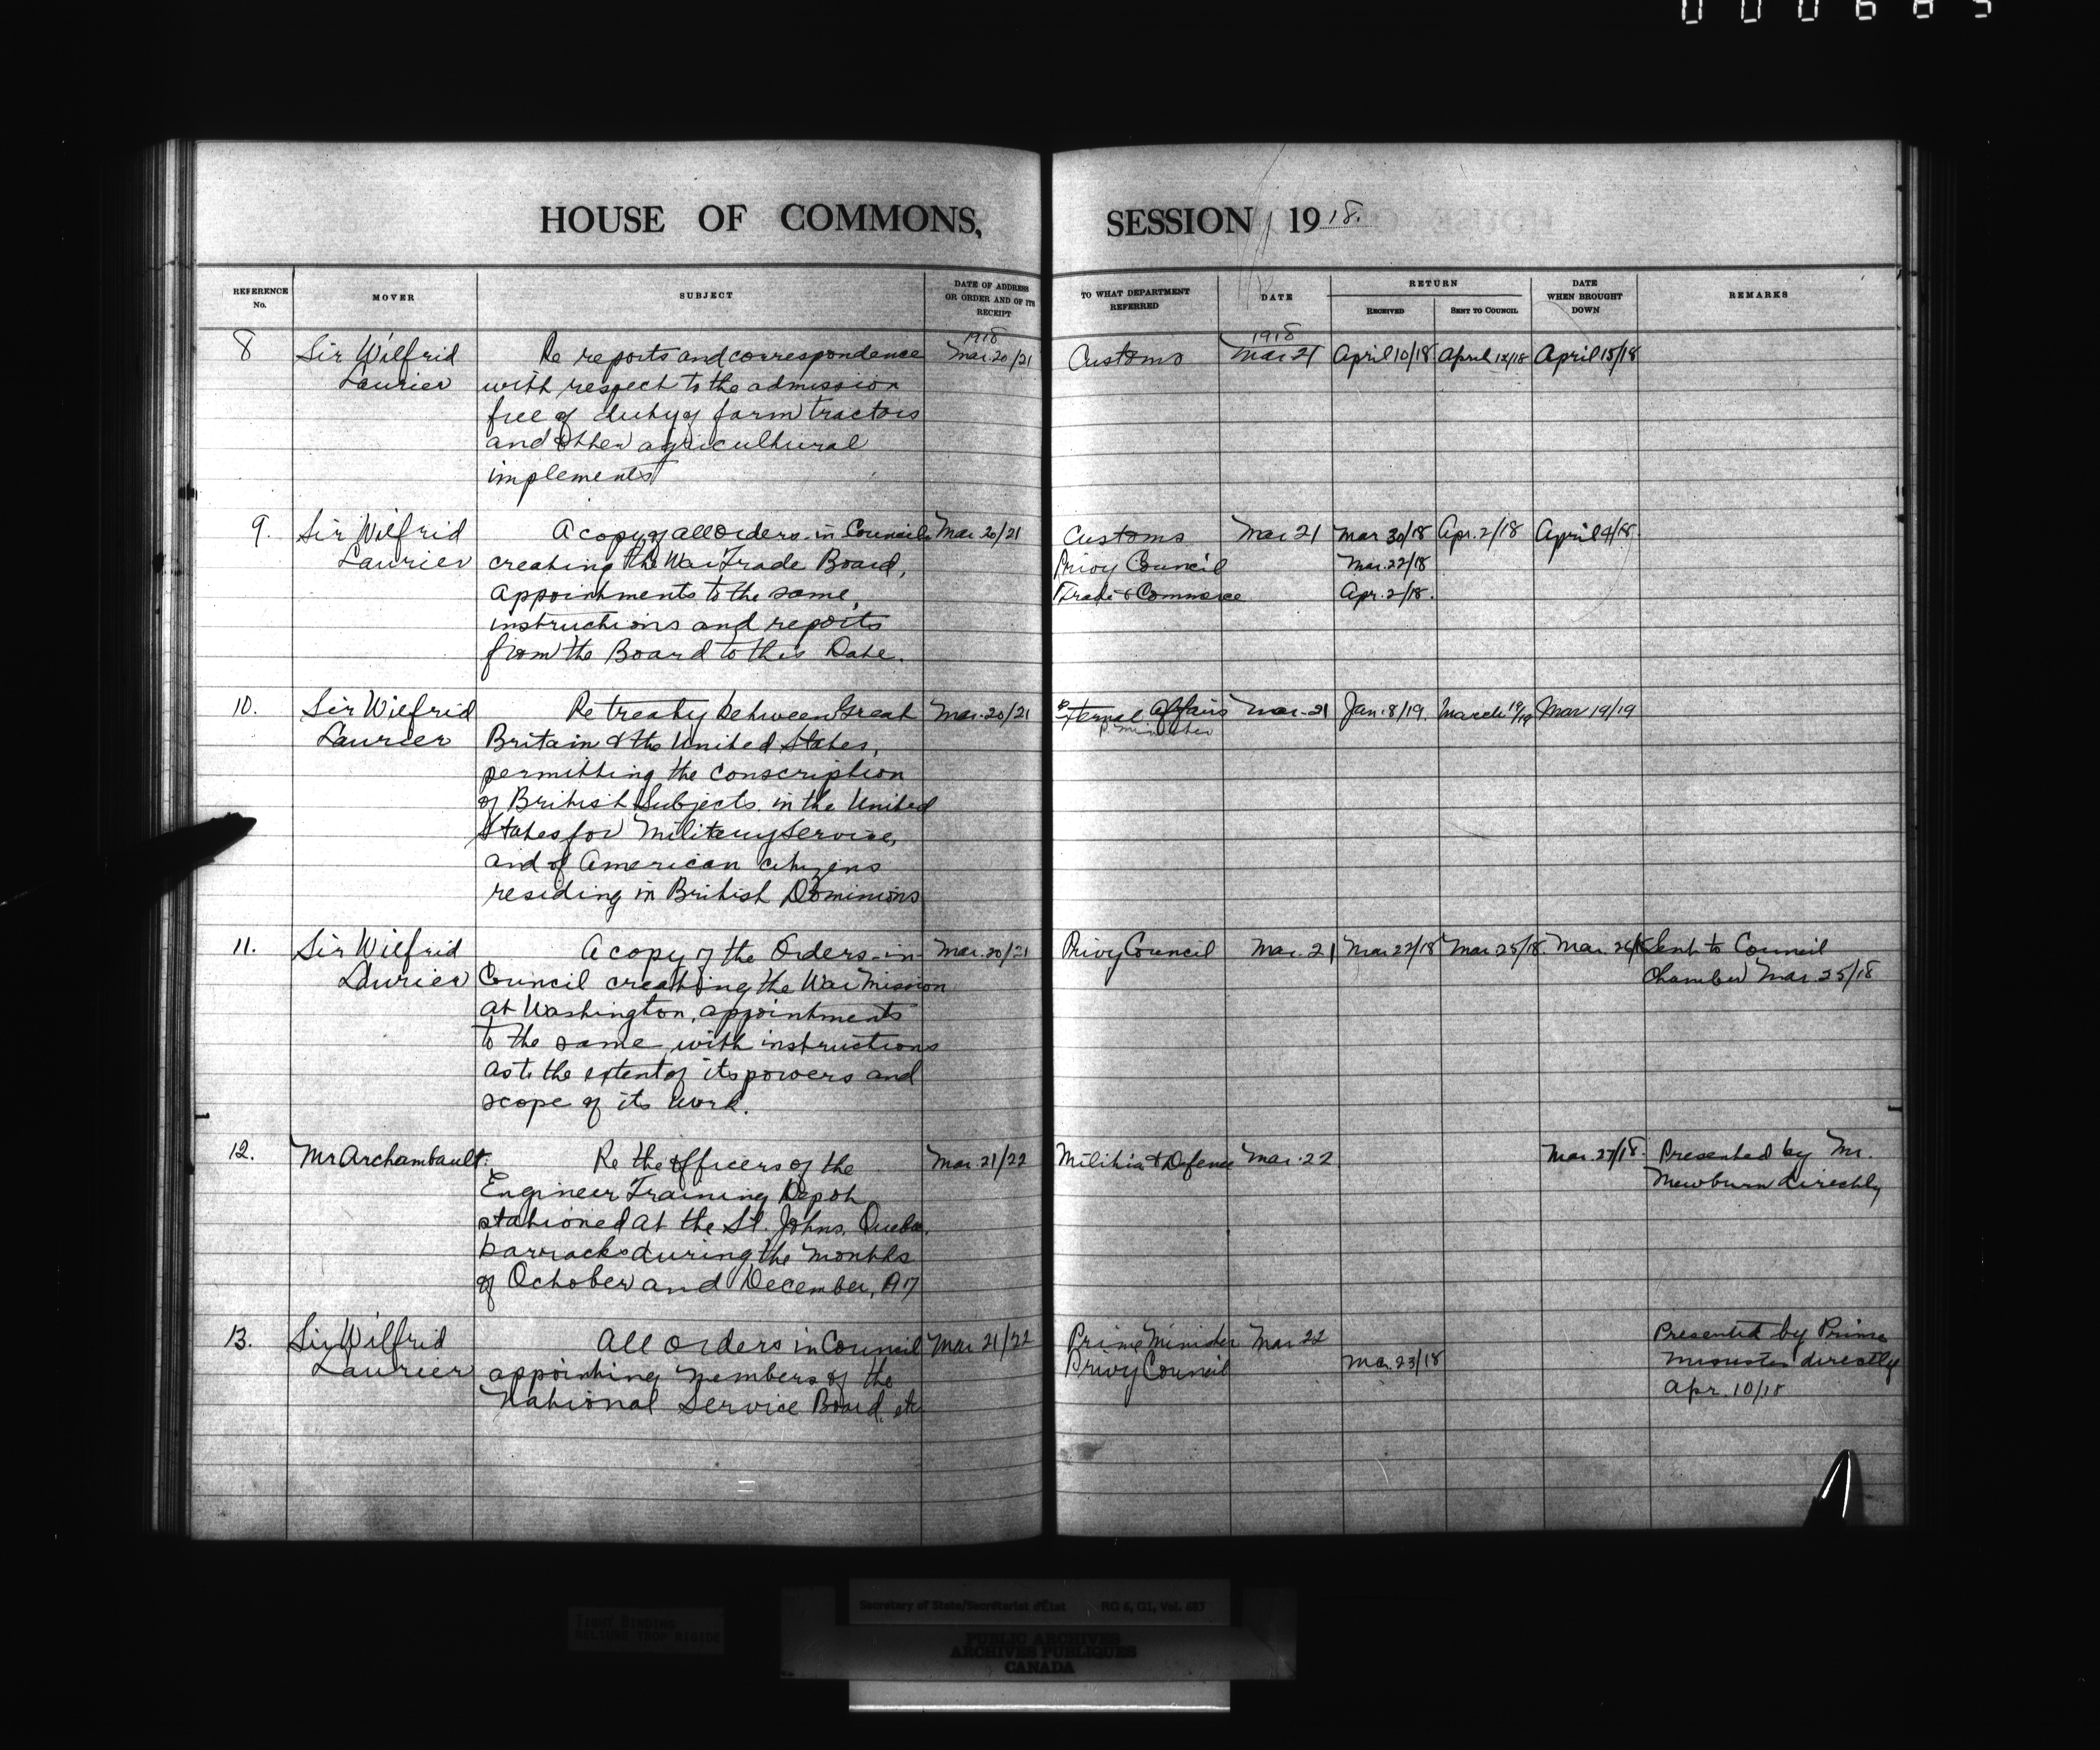 HOUSE OF COMMONS, SESSION 1918.
REFERENCE No.
MOVER
SUBJECT
DATE OF ADDRESS OR ORDER AND OF ITS RECEIPT
TO WHAT DEPARTMENT REFERRED
DATE
RETURN
RECEIVED
SENT TO COUNCIL
DATE WHEN BROUGHT DOWN
REMARKS
1918
1918
8 Sir Wilfrid Re reports and correspondence Mar. 20/21 Customs Mar 21 April 10/18 April 12/18 April 15/18
Laurier with respect to the admission
free of duty of farm tractors
and other agricultural
implements
9. Sir Wilfrid A copy of all Orders in Council Mar. 20/21 Customs Mar 21 Mar 30/18 Apr. 2/18 April 4/18.
Laurier creating the War Trade Board, Privy Council Mar. 22/18
appointments to the same, Trade & Commerce Apr. 2/18.
instructions and reports
from the Board to this Date.
10. Sir Wilfrid Re treaty between Great Mar. 20/21 External Affairs Mar. 21 Jan. 8/19. March 19/19 Mar 19/19
Laurier Britain & the United States, P. Minister
permitting the conscription
of British Subjects in the United
States for Military Service,
and of American citizens
residing in British Dominions
11. Sir Wilfrid A copy of the Orders-in- Mar. 20/21 Privy Council Mar. 21 Mar 22/18 Mar. 25/18. Mar. 26/18 Sent to Council
Laurier Council creating the War Mission Chamber Mar. 25/18
at Washington, appointments
to the same with instructions
as to the extent of its powers and
scope of its work.
12. Mr Archambault. Re the officers of the Mar. 21/22 Militia & Defence Mar. 22 Mar. 27/18. Presented by Mr.
Engineer Training Depot Mewburn directly
stationed at the St. Johns, Quebec.
barracks during the months
of October and December, 1917
13. Sir Wilfrid All Orders in Council Mar. 21/22 Prime Minister Mar 22 Presented by Prime
Laurier appointing members of the Privy Council Mar. 23/18 Minister directly
National Service Board, etc Apr. 10/18
TIGHT BINDING
RELIURE TROP RIGIDE
Secretary of State/Secrétariat d'État RG 6, G1, Vol. 683
PUBLIC ARCHIVES
ARCHIVES PUBLIQUES
CANADA